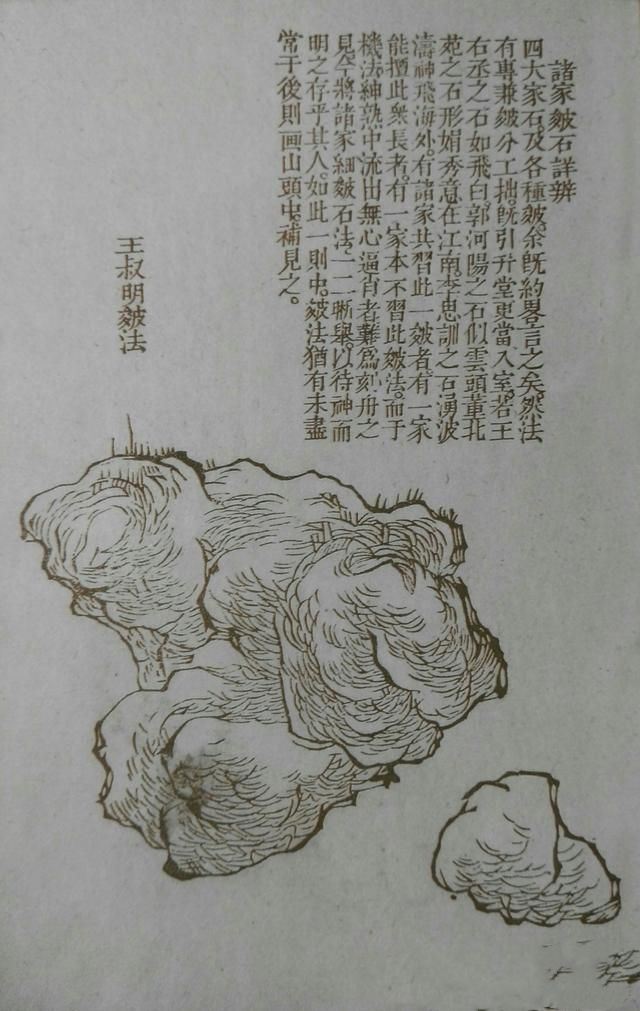 諸家皴石詳辨
四大家石及各種皴。余既約畧言之矣。然法
有專兼皴分工拙。既引升堂更當入室。若王
右丞之石如飛白。郭河陽之石似雲頭董北
苑之石形娟秀意在江南。李思訓之石湧波
濤神飛海外。有諸家共習此一皴者。有一家
能擅此衆長者。有一家本不習此皴法。而于
機法紳熟中流出無心逼肖者難爲刻舟之
見。今將諸家細皴石法。一二晰舉。以待神而
明之存乎其人。如此一則中。皴法猶有未盡
常于後則画山頭中。補見之。
王叔明皴法